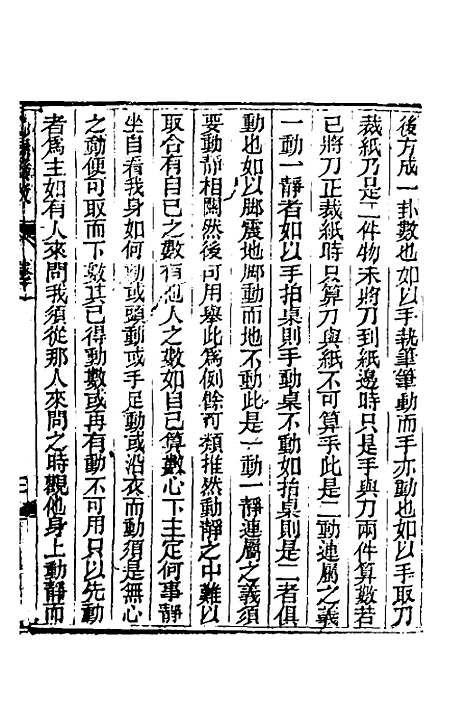 後方成一卦數也如以手執筆筆動而手亦動也如以手取刀
裁紙乃是二件物未將刀到紙邊時只是手與刀兩件算數若
已將刀正裁紙時只算刀與紙不可算手此是二動連屬之義
一動一靜者如以手拍桌則手動桌不動如抬桌則是二者俱
動也如以脚震地脚動而地不動此是一動一靜連屬之義須
要動靜相關然後可用舉此爲例餘可類推然動靜之中難以
取合有自已之數有他人之數如自已算數心下主定何事靜
坐自看我身如何動或頭動或手足動或沿衣而動須是無心
之動便可取而下數其已得動數或再有動不可用只以先動
者爲主如有人來問我須從那人來問之時觀他身上動靜而